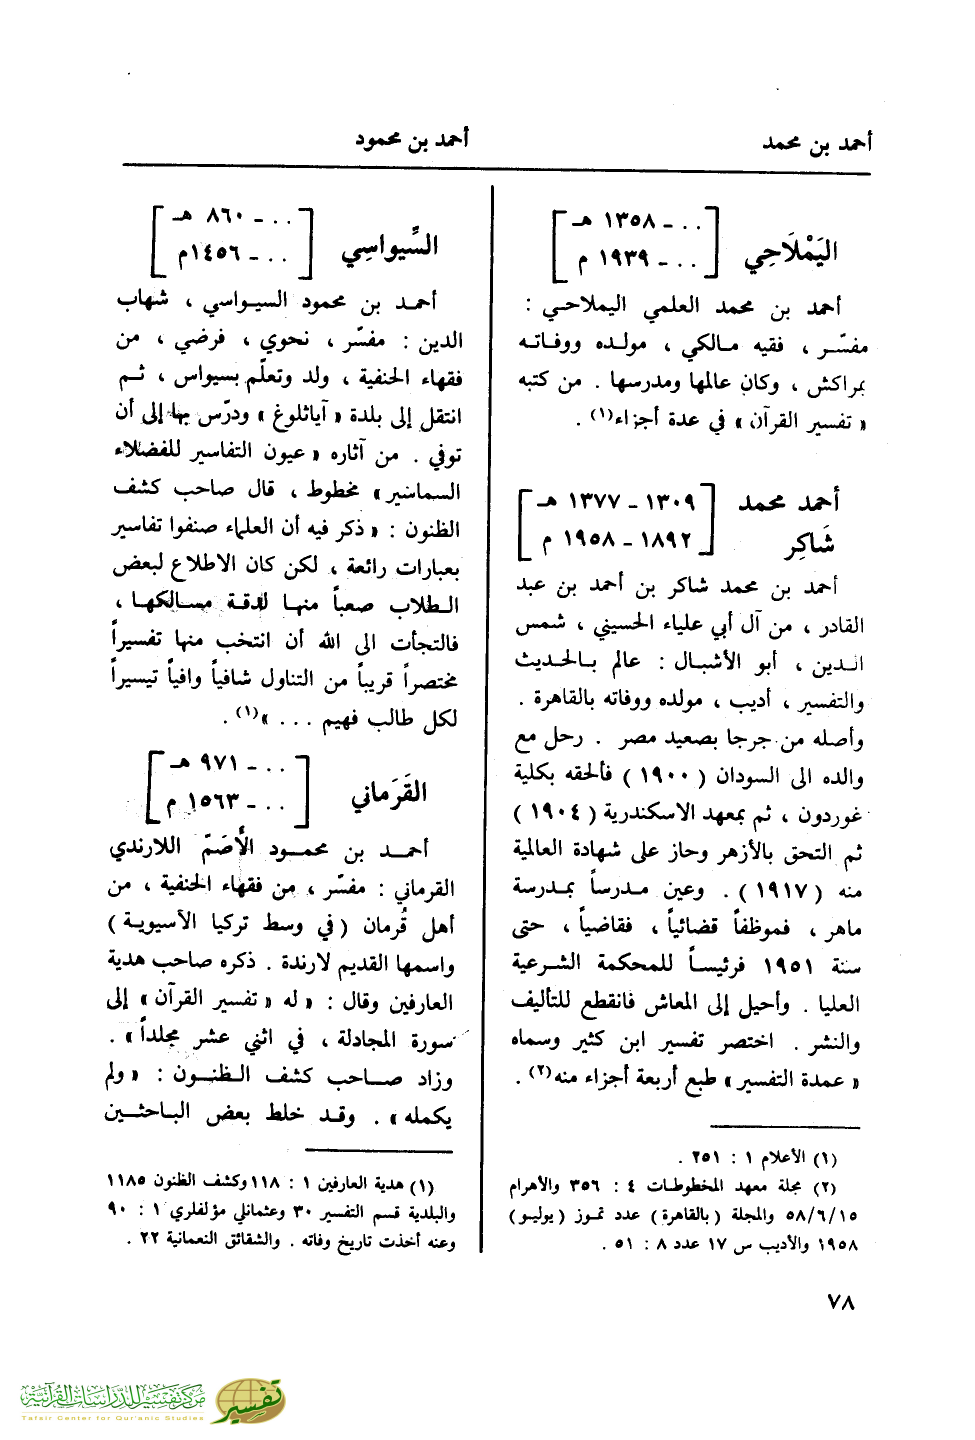 أحمد بن محمد
أحمد بن محمود
اليَمْلَاحِي [ .. ـ ١٣٥٨ هـ
.. ـ ١٩٣٩ م ]
أحمد بن محمد العلمي اليملاحي :
مفسّر ، فقيه مالكي ، مولده ووفاته
بمراكش ، وكان عالمها ومدرسها . من كتبه
« تفسير القرآن » في عدة أجزاء(١) .
أحمد محمد [ ١٣٠٩ ـ ١٣٧٧ هـ
شَاكِر ١٨٩٢ ـ ١٩٥٨ م ]
أحمد بن محمد شاكر بن أحمد بن عبد
القادر ، من آل أبي علياء الحسيني ، شمس
الدين ، أبو الأشبال : عالم بالحديث
والتفسير ، أديب ، مولده ووفاته بالقاهرة .
وأصله من جرجا بصعيد مصر . رحل مع
والده الى السودان ( ١٩٠٠ ) فألحقه بكلية
غوردون ، ثم بمعهد الاسكندرية ( ١٩٠٤ )
ثم التحق بالأزهر وحاز على شهادة العالمية
منه ( ١٩١٧ ) . وعين مدرساً بمدرسة
ماهر ، فموظفاً قضائياً ، فقاضياً ، حتى
سنة ١٩٥١ فرئيساً للمحكمة الشرعية
العليا . وأحيل إلى المعاش فانقطع للتأليف
والنشر . اختصر تفسير ابن كثير وسماه
« عمدة التفسير » طبع أربعة أجزاء منه(٢) .
(١) الأعلام ١ : ٢٥١ .
(٢) مجلة معهد المخطوطات ٤ : ٣٥٦ والأهرام
٥٨/٦/١٥ والمجلة ( بالقاهرة ) عدد تموز ( يوليو )
١٩٥٨ والأديب س ١٧ عدد ٨ : ٥١ .
السِّيواسِي [ .. ـ ٨٦٠ هـ
.. ـ ١٤٥٦م ]
أحمد بن محمود السيواسي ، شهاب
الدين : مفسّر ، نحوي ، فرضي ، من
فقهاء الحنفية ، ولد وتعلّم بسيواس ، ثم
انتقل إلى بلدة « آياثلوغ » ودرّس بها إلى أن
توفي . من آثاره « عيون التفاسير للفضلاء
السماسير » مخطوط ، قال صاحب كشف
الظنون : « ذكر فيه أن العلماء صنفوا تفاسير
بعبارات رائعة ، لكن كان الاطلاع لبعض
الطلاب صعباً منها لدقة مسالكها ،
فالتجأت الى الله أن انتخب منها تفسيراً
مختصراً قريباً من التناول شافياً وافياً تيسيراً
لكل طالب فهيم ... »(١) .
القَرَماني [ .. ـ ٩٧١ هـ
.. ـ ١٥٦٣ م ]
أحمد بن محمود الأَصَمّ اللارندي
القرماني : مفسّر ، من فقهاء الحنفية ، من
أهل قُرمان ( في وسط تركيا الآسيوية )
واسمها القديم لارندة . ذكره صاحب هدية
العارفين وقال : « له « تفسير القرآن » إلى
سورة المجادلة ، في اثني عشر مجلداً » .
وزاد صاحب كشف الظنون : « ولم
يكمله » . وقد خلط بعض الباحثين
(١) هدية العارفين ١ : ١١٨ وكشف الظنون ١١٨٥
والبلدية قسم التفسير ٣٠ وعثمانلي مؤلفلري ١ : ٩٠
وعنه أخذت تاريخ وفاته . والشقائق النعمانية ٢٢ .
٧٨
مركز تفسير للدراسات القرآنية
Tafsir Center for Qur'anic Studies
تفسير